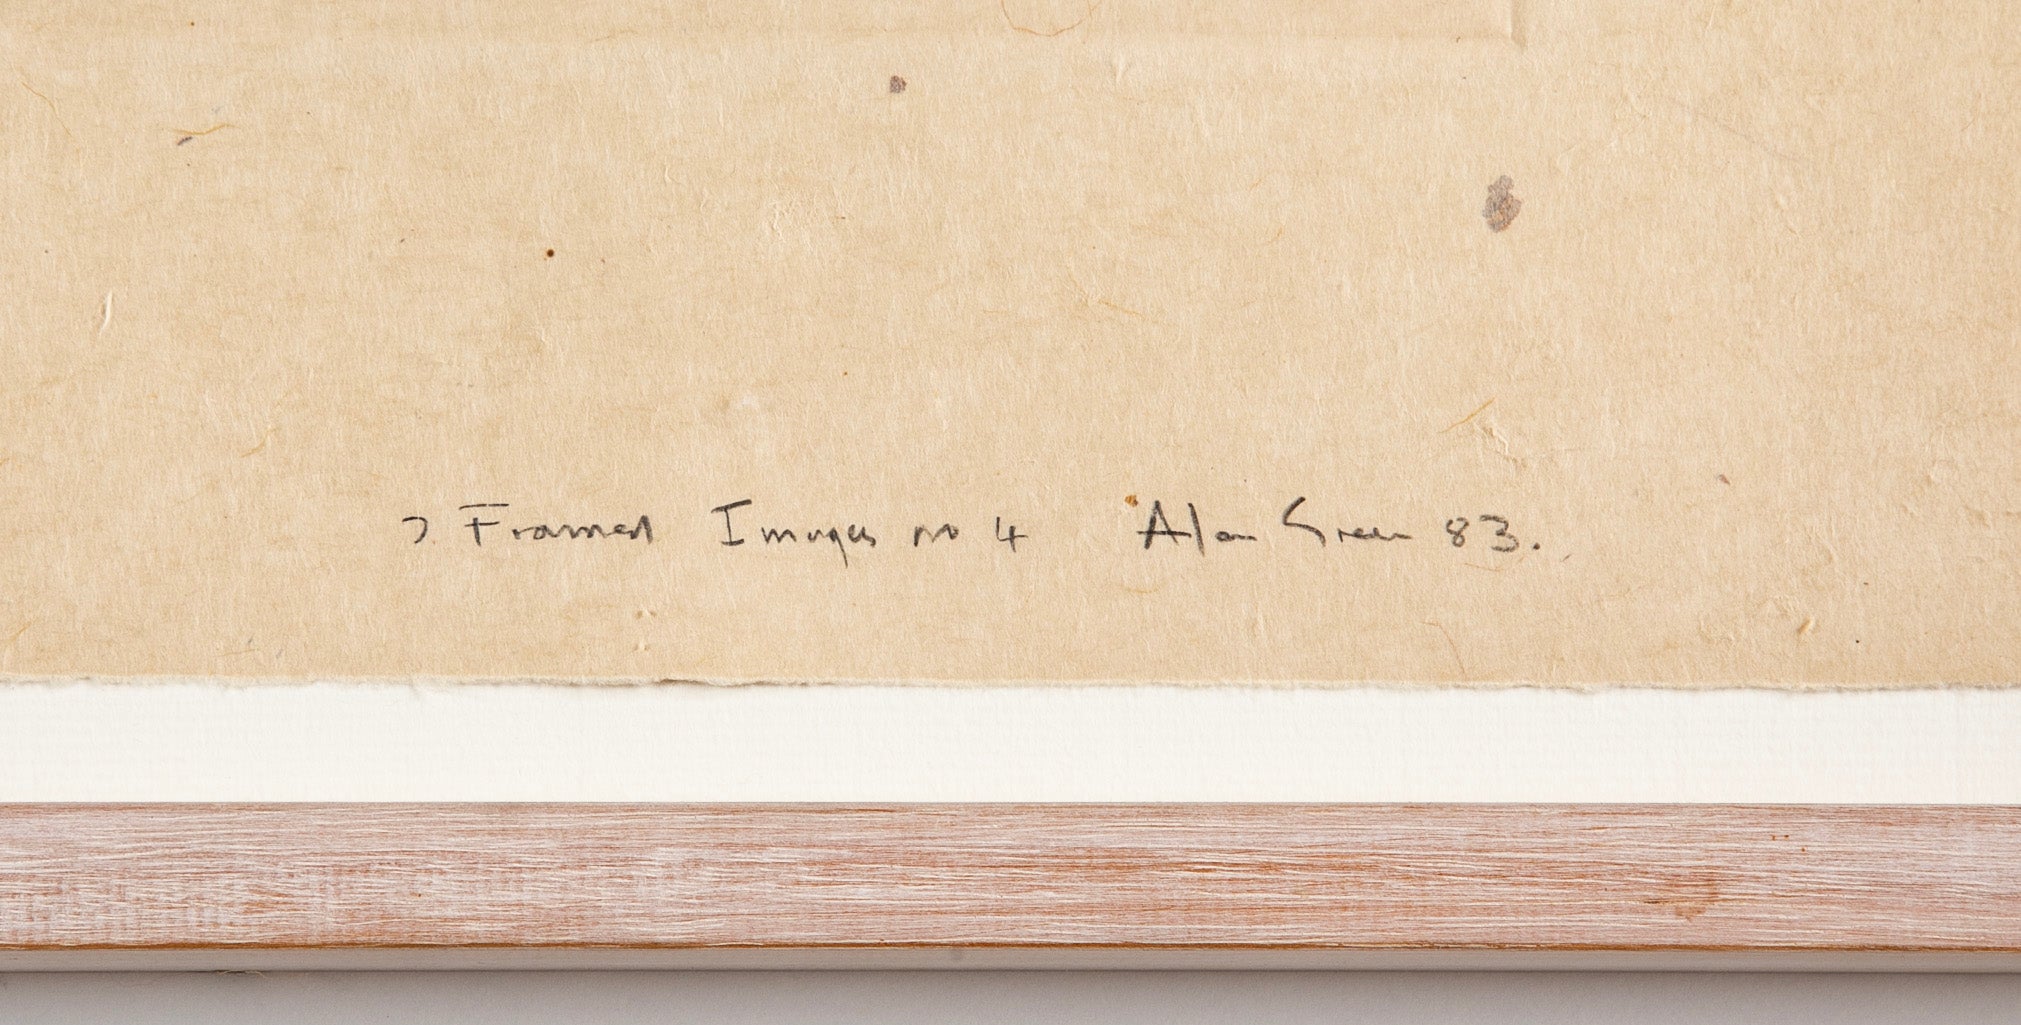 Framed Images no 4 Alan Green 83.